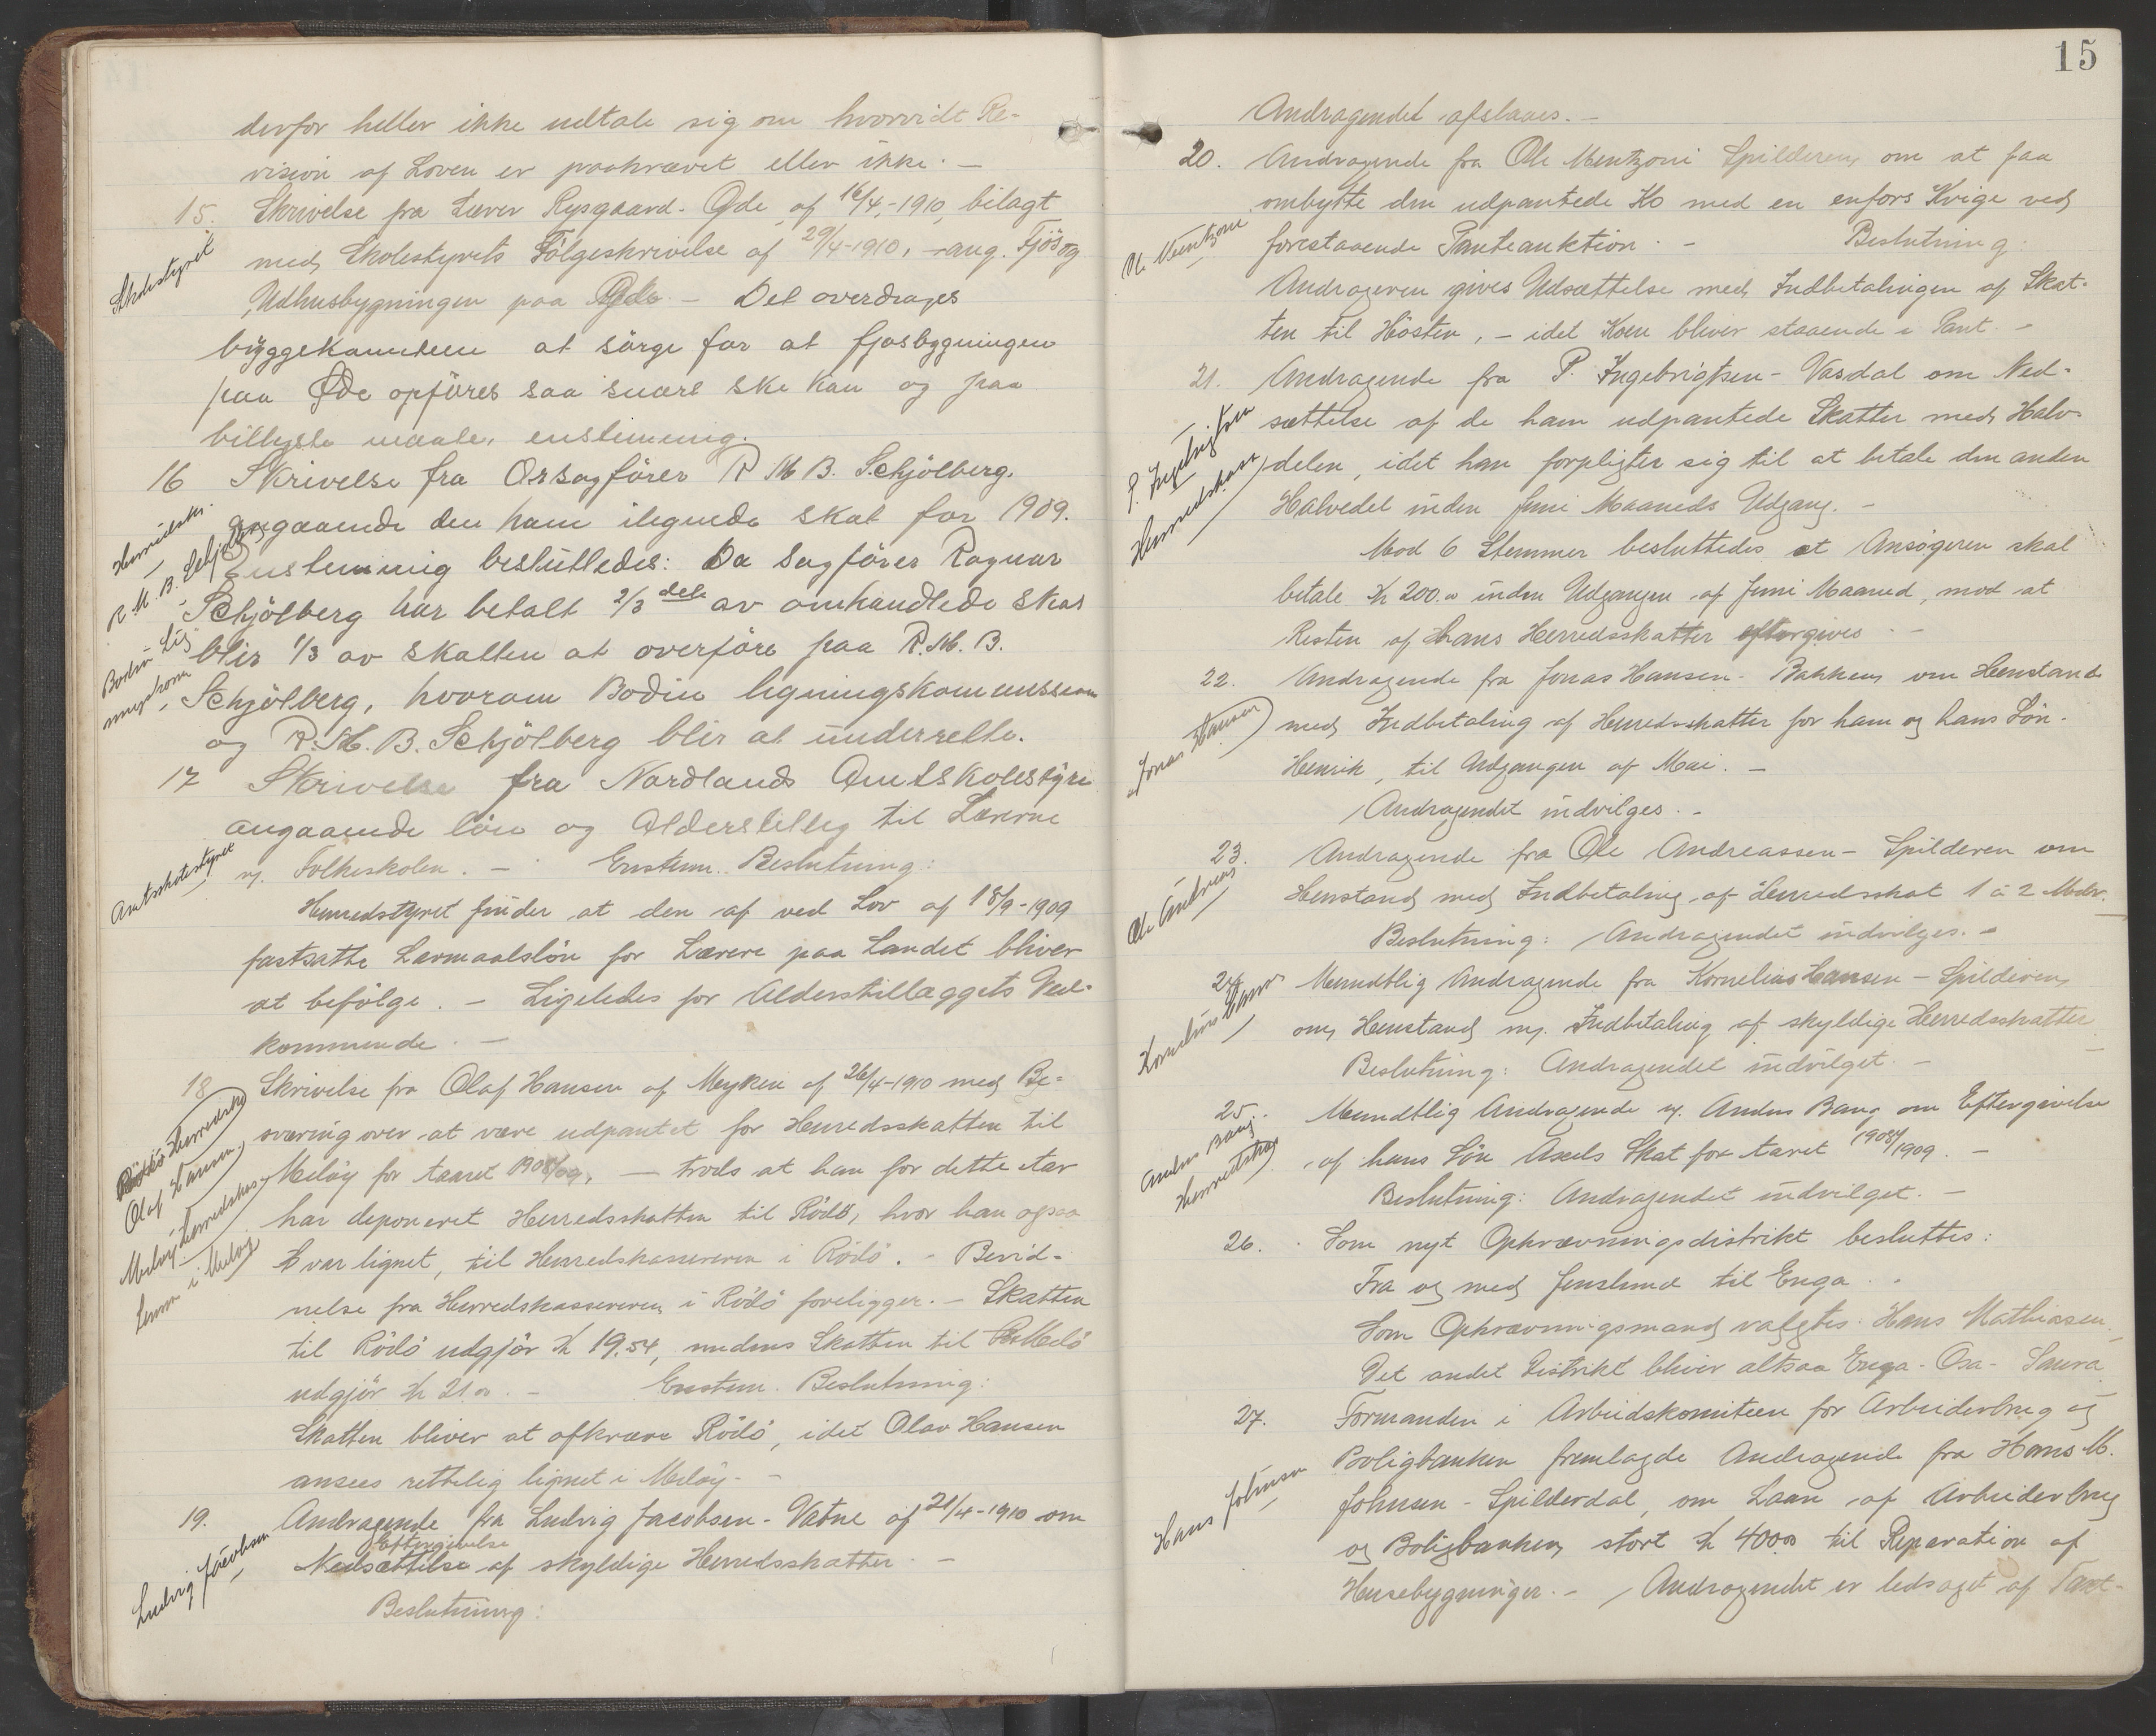 derfor heller ikke udtale sig om hvorvidt Re-
vision af Loven er paakrævet eller ikke. —
15. Skrivelse fra Lærer Rysgaard - Øde af 16/4-1910, bilagt
Skolestyret
med Skolestyrets Følgeskrivelse af 29/4-1910, - ang. Fjøs og
Udhusbygningen paa Øde. — Det overdrages
byggekomiteen at sörge for at fjosbygningen
paa Øde opföres saa snart ske kan og paa
billigste maate. enstemmig.
16 Skrivelse fra Orsagförer R M B. Schjölberg.
Herredskr.
angaaende den ham ilignede skat for 1909.
R. M. B. Schjölberg
Enstemmig beslutledes: Da Sagförer Ragnar
Schjölberg har betalt 2/3 dele av omhandlede skat
Bodin Lig-
blir 1/3 av skatten at overföre paa R. M. B.
ningskom
Schjölberg, hvorom Bodin ligningskommission
og R. M. B. Schjölberg blir at underrette.
17 Skrivelse fra Nordlands Amtskolestyre
angaaende lön og Alderstillæg til Lærerne
Amtsskolestyret
v. Folkeskolen. — Enstem. Beslutning:
Herredstyret finder at den af ved Lov af 18/9-1909
fastsatte Lærmaalslön for Lærere paa Landet bliver
at befölge. — Ligeledes for Alderstillæggets Ved-
kommende. —
18 Skrivelse fra Olaf Hansen af Myken af 26/4-1910 med Be-
Rödö Herredsk
sværing over at være udpantet for Herredsskatten til
Olaf Hansen,
Melöy for Aaret 1908/09, — trods at han for dette Aar
Melöy Herredskas-
har deponeret Herredsskatten til Rödö, hvor han ogsaa
serer i Melöy
var lignet, til Herredskassereren i Rödö. - Bevid-
nelse fra Herredskassereren i Rödö foreligger. — Skatten
til Rödö udgjör Kr 19.54, medens Skatten til Melö
udgjör Kr 21.00. — Enstem. Beslutning:
Skatten bliver at afkræve Rödö, idet Olav Hansen
ansees rettelig lignet i Melöy. —
19. Andragende fra Ludvig Jacobsen - Vatne af 21/4-1910 om
Ludvig Jacobsen
Eftergivelse
Nedsættelse af skyldige Herredsskatter. —
Beslutning:
15
Andragendet afslaaes. —
20. Andragende fra Ole Mentzoni Spilderen om at faa
ombytte den udpantede Ko med en enfors Kvige ved
Ol. Mentzoni
forestaaende Panteauktion. — Beslutning:
Andrageren gives Udsættelse med Indbetalingen af Skat-
ten til Hösten, — idet Koen bliver staaende i Pant. —
21. Andragende fra P. Ingebrigtsen - Vasdal om Ned-
P. Ingebrigtsen
sættelse af de ham udpantede Skatter med Halv-
Herredskass
delen, idet han forpligter sig til at betale den anden
Halvedel inden Juni Maaneds Udgang. —
Mod 6 Stemmer besluttedes at Ansögeren skal
betale Kr 200.00 inden Udgangen af Juni Maaned, mod at
Resten af hans Herredsskatter eftergives. —
22. Andragende fra Jonas Hansen - Bakken om Henstand
Jonas Hansen
med Indbetaling af Herredsskatter for ham og hans Sön.
Henrik, til Udgangen af Mai. —
Andragendet indvilges. —
23. Andragende fra Ole Andreassen - Spilderen om
Ole Andreas
Henstand med Indbetaling af Herredsskat 1 à 2 Mdr.
Beslutning: Andragendet indvilges. —
24. Mundtlig Andragende fra Kornelius Hansen - Spilderen
Kornelius Hansen
om Henstand m. Indbetaling af skyldige Herredsskatter
Beslutning: Andragendet indvilget. —
25. Mundtlig Andragende v. Anders Bang om Eftergivelse
Anders Bang.
Herredskas
af hans Sön Axels Skat for Aaret 1908/1909. —
Beslutning: Andragendet indvilget. —
26. Som nyt Opkrævningsdistrikt besluttes:
Fra og med Jenslund til Enga. —
Som Opkrævningsmand valgtes: Hans Mathiasen.
Det andet Distrikt bliver altsaa Enga - Osa - Saura
27. Formanden i Arbeidskomiteen for Arbeiderbrug og
Boligbanken fremlagde Andragende fra Hans M.
Hans Johnsen
Johnsen - Spilderdal, om Laan af Arbeiderbrug
og Boligbanken, stort Kr 400.00 til Reparation af
Husebygninger. — Andragendet er ledsaget af Takt-